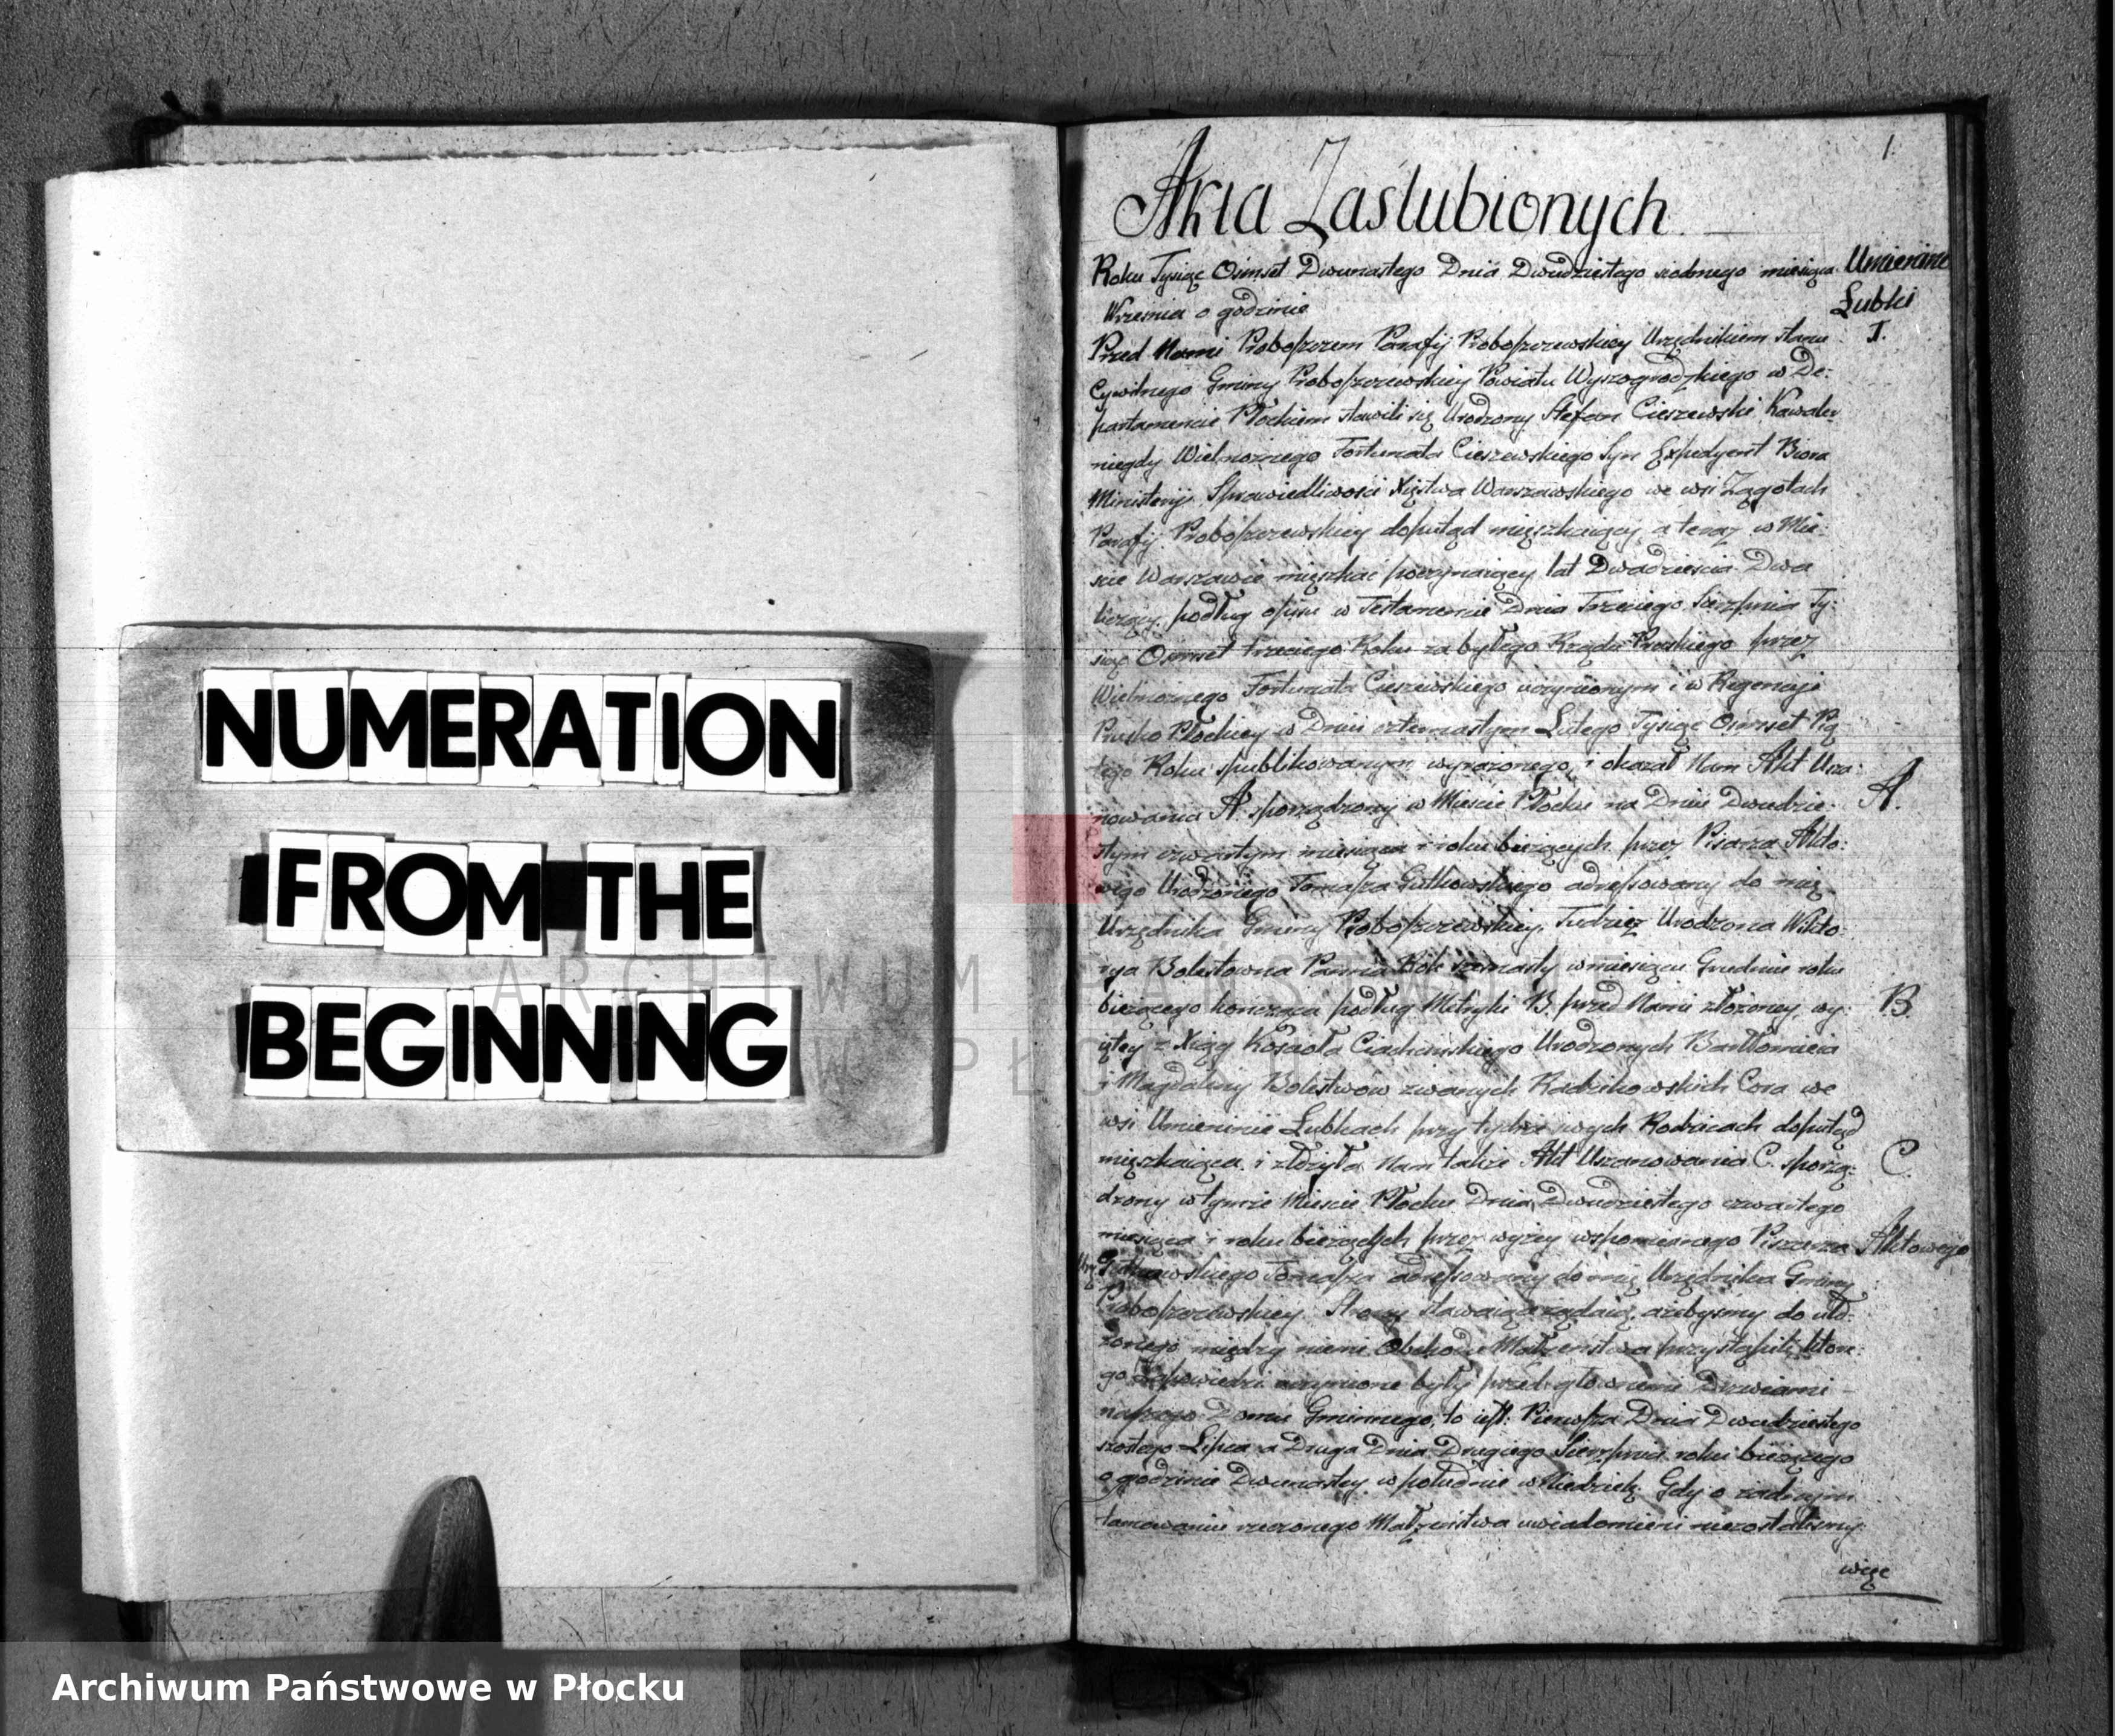 NUMERATION
FROM THE
BEGINNING
1.
Akta Zaslubionych
Roku Tysiąc Osmset Dwunastego Dnia Dwudziestego siodmego miesiąca
Wrzesnia o godzinie
Umienine
Łubki
I.
Przed Nami Proboszczem Parafij Proboszczewskiey Urzędnikiem stanu
Cywilnego Gminy Proboszczewskiey Powiatu Wyszogrodzkiego w De:
partamencie Płockiem stawili się Urodzony Stefan Cieszewski Kawaler
niegdy Wielmożnego Fortunata Cieszewskiego Syn Expedyent Biora
Ministeryi Sprawiedliwości Xięstwa Warszawskiego we wsi Zagotach
Parafij Proboszczewskiey doputąd mięszkaiący, a teraz w Mie:
scie Warszawie mięszkać poczynaiący lat Dwadzieścia Dwa
liczący, podług opisu w Testamencie Dnia Trzeciego Sierpnia Ty:
siąc Osmset trzeciego Roku za byłego Rządu Pruskiego przez
Wielmożnego Fortunata Cieszewskiego uczynionym i w Regencyi
Prusko Płockiey w Dniu czternastym Lutego Tysiąc Osmset Pią
tego Roku spublikowanym wyrażonego, i okazał Nam Akt Usza:
nowania A sporządzony w Mieście Płocku na Dniu Dwudzie:
A.
stym czwartym miesiąca i roku bieżących przez Pisarza Akto:
wego Urodzonego Tomasza Gutkowskiego adressowany do mię
Urzędnika Gminy Proboszczewskiey, Tudzież Urodzona Wikto
rya Bolestowna Panna Rok szesnasty w miesiącu Grudniu roku
bieżącego kończąca podług Metryki B. przed Nami złożoney, wy:
B.
iętey z Xiąg Kościoła Ciachcinskiego Urodzonych Bartłomieia
i Magdaliny Bolestwów zwanych Radzikowskich Cora we
wsi Umieninie Łubkach przy tychże swych Rodzicach doputąd
mięszkaiąca, i złożyła Nam także Akt Uszanowania C. sporzą:
C.
dzony w tymże Mieście Płocku Dnia Dwudziestego czwartego
miesiąca i roku bieżących przez wyżey wspomnianego Pisarza Aktowego
Gutkowskiego Tomasza adressowany do mię Urzędnika Gminy
Proboszczewskiey. Strony stawaiące żądaią, ażebyśmy do uło:
żonego między niemi Obchodu Małżeństwa przystąpili, które:
go Zapowiedzi uczynione były przed głownemi Drzwiami
naszego Domu Gminnego, to iest: Pierwsza Dnia Dwudziestego
szostego Lipca a Druga Dnia Drugiego Sierpnia roku bieżącego
o godzinie Dwunastey w południe w Niedzielę. Gdy o żadnym
tamowaniu rzeczonego Małżeństwa uwiadomieni niezostaliśmy.
więc
ARCHIWUM PAŃSTWOWE
W PŁOCKU
Archiwum Państwowe w Płocku